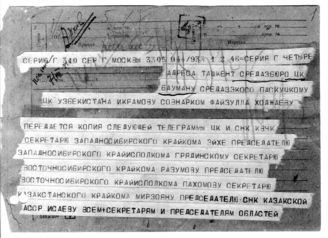 СЕРИЯ Г 340 СЕР Г МОСКВЫ 3305 СЕРИЯ Г ЧЕТЫРЕ
АДРЕСА ТАШКЕНТ СРЕДАЗБЮРО ЦК
БАУМАНУ СРЕДАЗЭКО ПАСКУЦКОМУ
ЦК УЗБЕКИСТАНА ИКРАМОВУ СОВНАРКОМ ФАЙЗУЛЛА ХОДЖАЕВУ
ПЕРЕДАЕТСЯ КОПИЯ СЛЕДУЮЩЕЙ ТЕЛЕГРАММЫ ЦК И СНК КВЧК
СЕКРЕТАРЮ ЗАПАДНОСИБИРСКОГО КРАЙКОМА ЭЙХЕ ПРЕДСЕДАТЕЛЮ
ЗАПАДНОСИБИРСКОГО КРАЙИСПОЛКОМА ГРЯДИНСКОМУ СЕКРЕТАРЮ
ВОСТОЧНОСИБИРСКОГО КРАЙКОМА РАЗУМОВУ ПРЕДСЕДАТЕЛЮ
ВОСТОЧНОСИБИРСКОГО КРАЙИСПОЛКОМА ПАХОМОВУ СЕКРЕТАРЮ
КАЗАКСТАНСКОГО КРАЙКОМА МИРЗОЯНУ ПРЕДСЕДАТЕЛЮ СНК КАЗАКСКОЙ
АССР ИСАЕВУ ВСЕМ СЕКРЕТАРЯМ И ПРЕДСЕДАТЕЛЯМ ОБЛАСТЕЙ